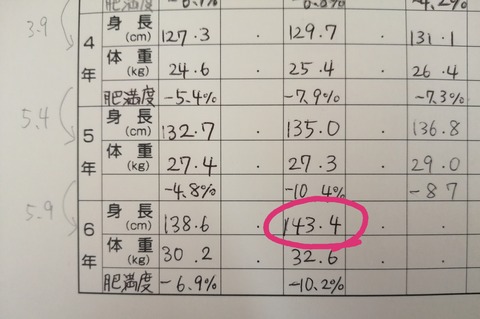 肥満度
3.9
4年 身長(cm) 127.3 . 129.7 . 131.1
体重(kg) 24.6 . 25.4 . 26.4
肥満度 -5.4% -7.9% -7.3%
5.4
5年 身長(cm) 132.7 . 135.0 . 136.8
体重(kg) 27.4 . 27.3 . 29.0
-4.8% -10.4% -8.7
5.9
6年 身長(cm) 138.6 . 143.4 . .
体重(kg) 30.2 . 32.6 . .
肥満度 -6.9% -10.2%